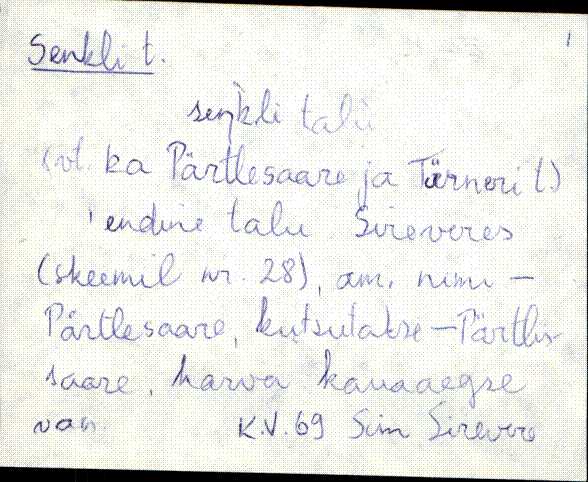 Senkli t.
seŋ̀kli talu
(vt. ka Pärtlesaare ja Türneri t)
'endine talu Sireveres
(skeemil nr. 28), am. nimi –
Pärtlesaare, kutsutakse – Pärtli-
saare, harva kauaaegse
van. K.V. 69 Sim Sirevere